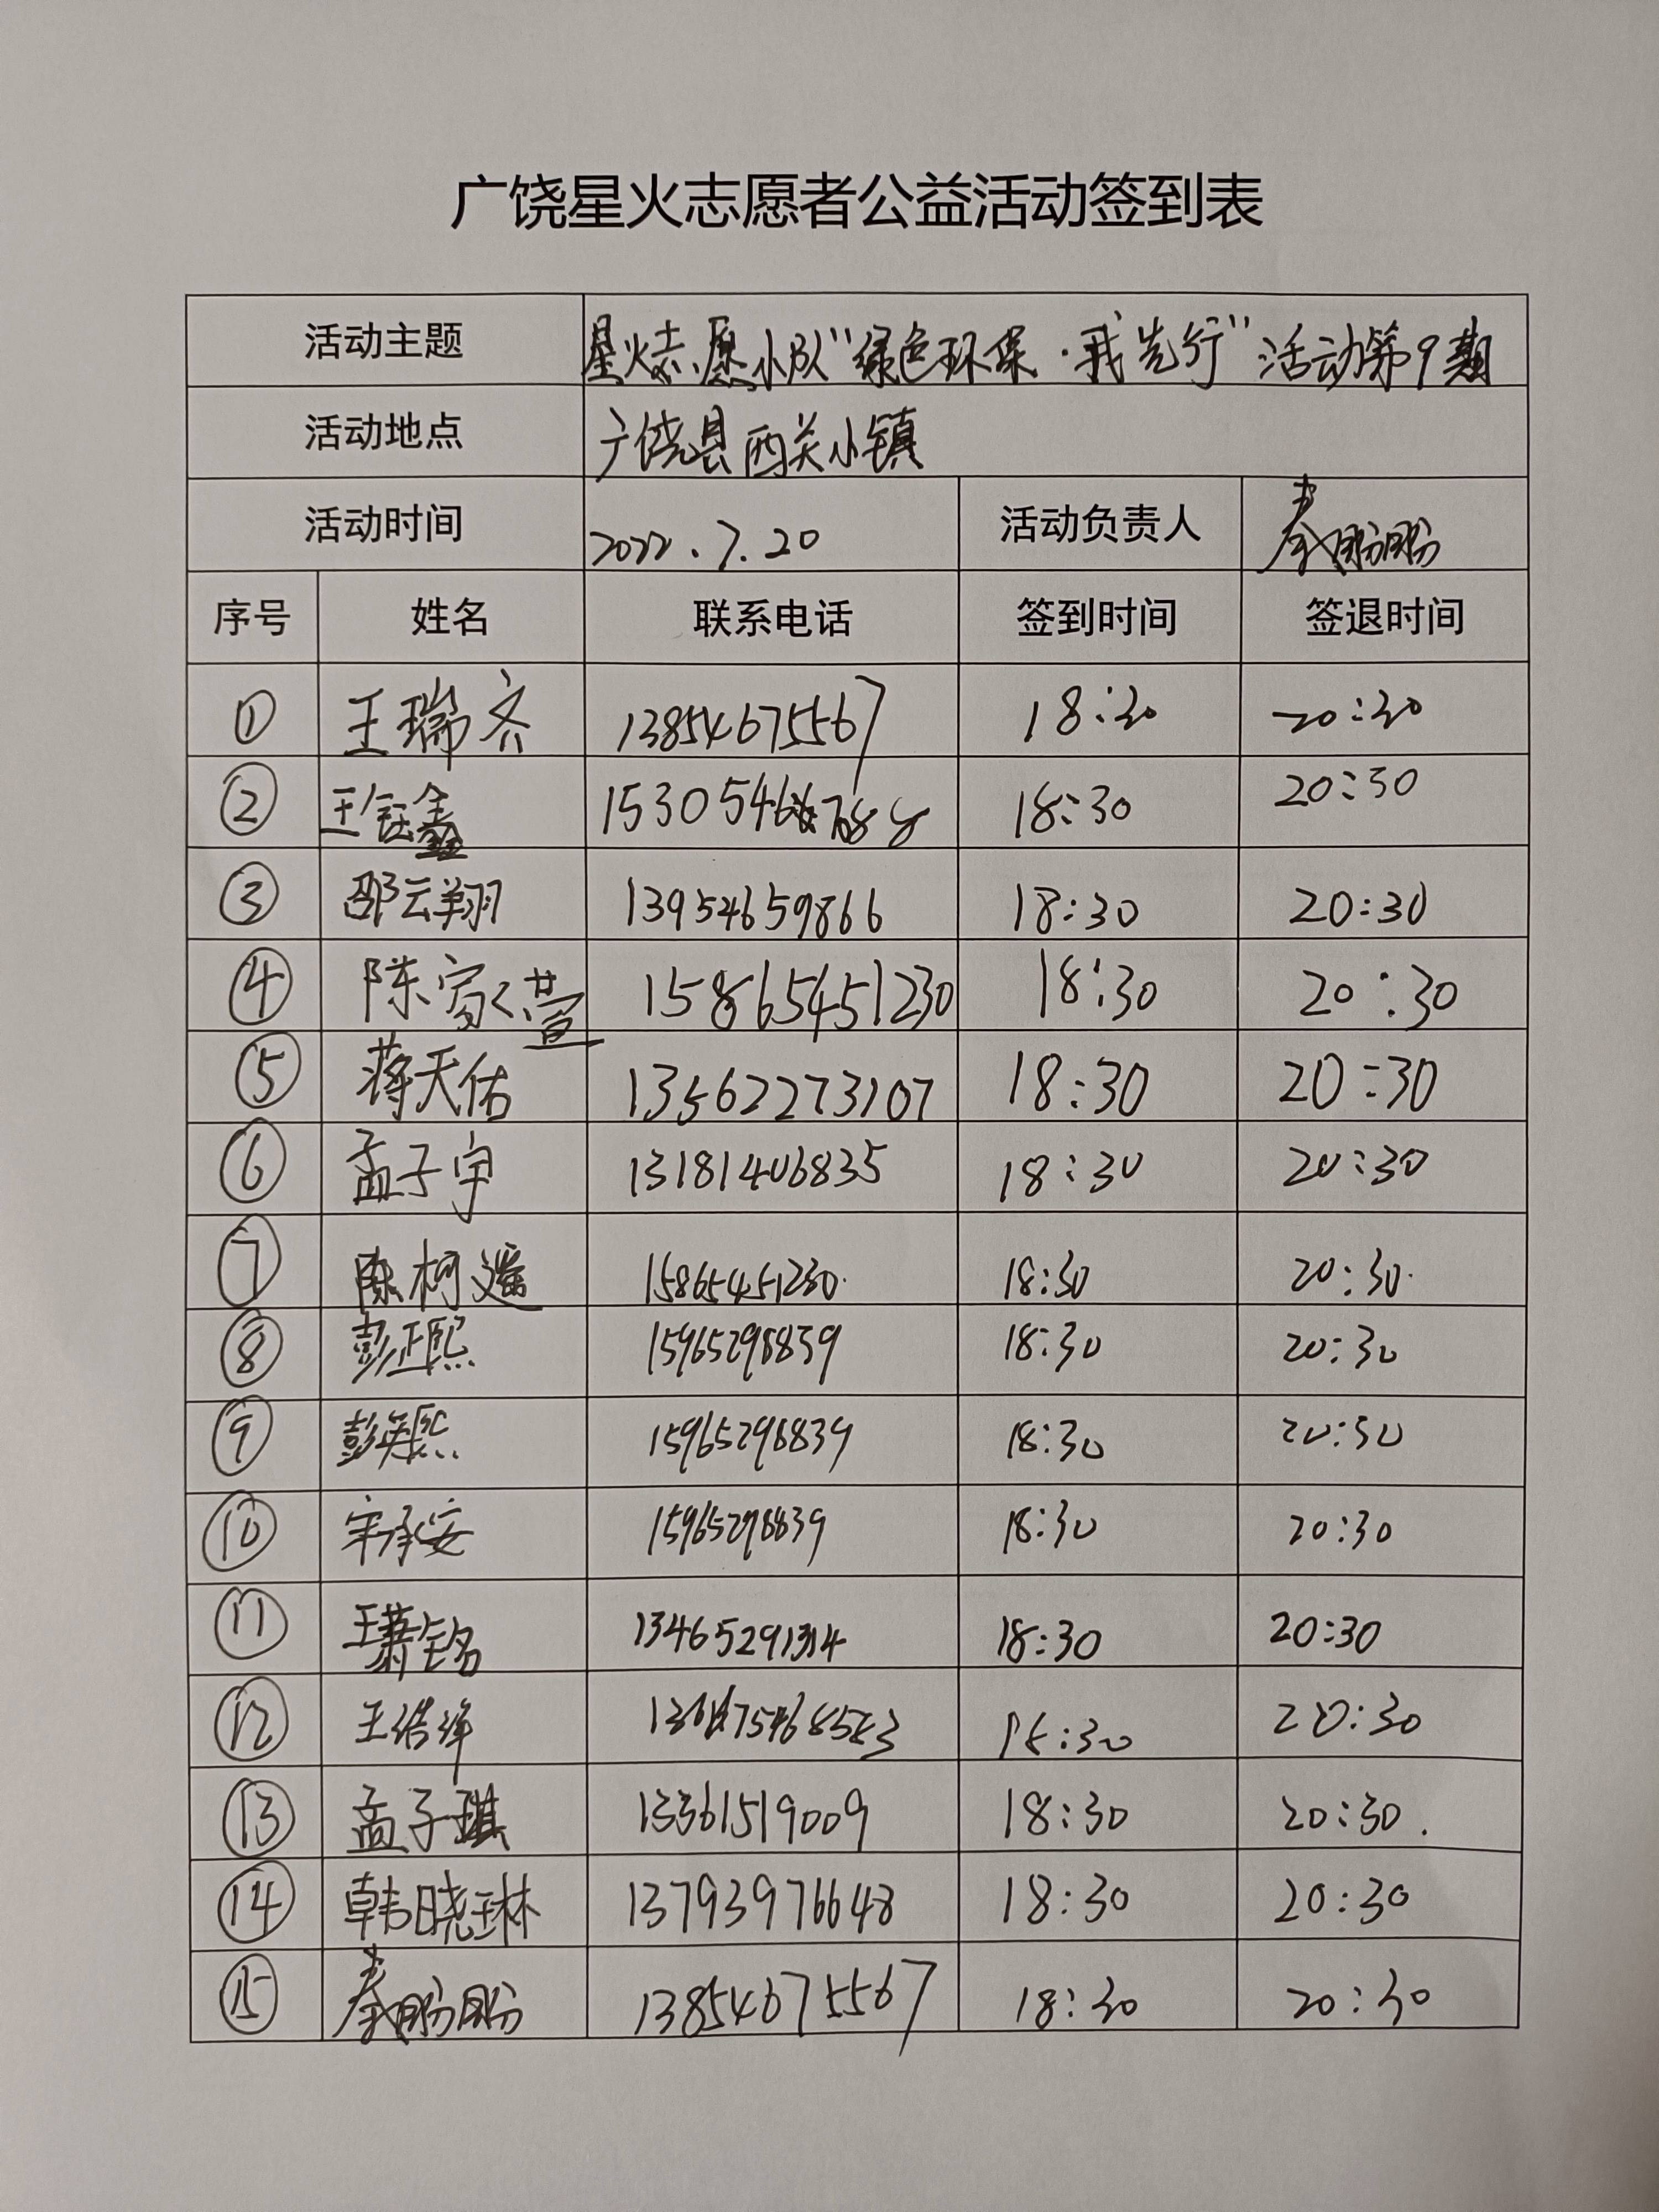 广饶星火志愿者公益活动签到表
活动主题 星火志愿小队"绿色环保·我先行"活动第9期
活动地点 广饶县西关小镇
活动时间 2022.7.20 活动负责人 秦盼盼
序号 姓名 联系电话 签到时间 签退时间
① 王瑞齐 13854675567 18:30 20:30
② 王钰鑫 18:30 20:30
③ 邵云翔 13954659866 18:30 20:30
④ 陈家萱 15865451230 18:30 20:30
⑤ 蒋天佑 13562273107 18:30 20:30
⑥ 孟子宇 13181406835 18:30 20:30
⑦ 陈柯遥 15865451230. 18:30 20:30.
⑧ 彭正熙 15965298839 18:30 20:30
⑨ 彭英熙 15965298839 18:30 20:30
⑩ 宋承安 15965298839 18:30 20:30
⑪ 王萧铭 13465291314 18:30 20:30
⑫ 18:30 20:30
⑬ 孟子琪 13361519009 18:30 20:30.
⑭ 韩晓琳 13793976648 18:30 20:30
⑮ 秦盼盼 13854675567 18:30 20:30